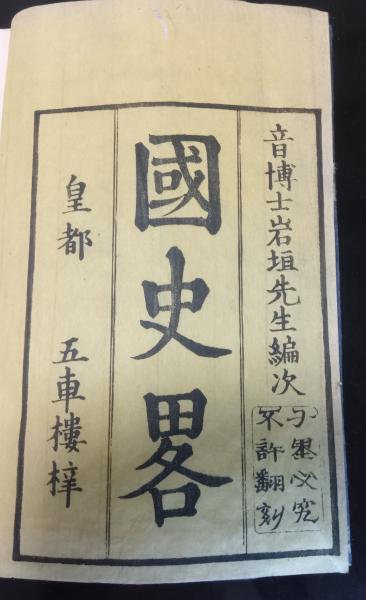 音博士岩垣先生編次
千里必究
不許翻刻
國史畧
皇都 五車樓梓